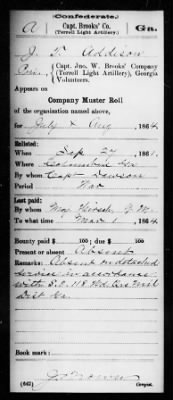 Confederate.
A
Capt. Brooks' Co.
(Terrell Light Artillery),
Ga.
J. T. Addison
Pvt., Capt. Jno. W. Brooks' Company
(Terrell Light Artillery), Georgia
Volunteers.
Appears on
Company Muster Roll
for July & Aug, 1864.
Enlisted:
When Sep 27, 1861.
Where Columbia Ga
By whom Capt Dawson
Period War
Last paid:
By whom Maj Hirsch Q. M.
To what time Mar 1, 1864.
Bounty paid $ 100; due $ 100
Present or absent Absent
Remarks: Absent on detached
service in accordance
with S.O. 118
Dist Ga.
Book mark:
(642)
Copyist.